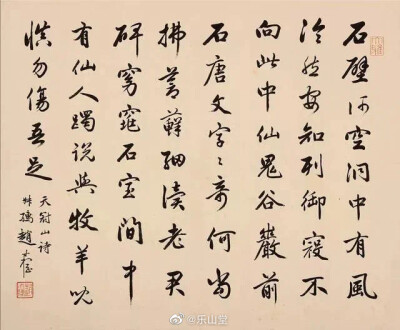 石壁何空洞中有風
泠然安知列御寇不
向此中仙鬼谷巖前
石唐文字々奇何當
拂蒼蘚細讀老君
碑窈窕石室間中
有仙人躅說與牧羊兒
慎勿傷吾足
天冠山詩
趙
@乐山堂